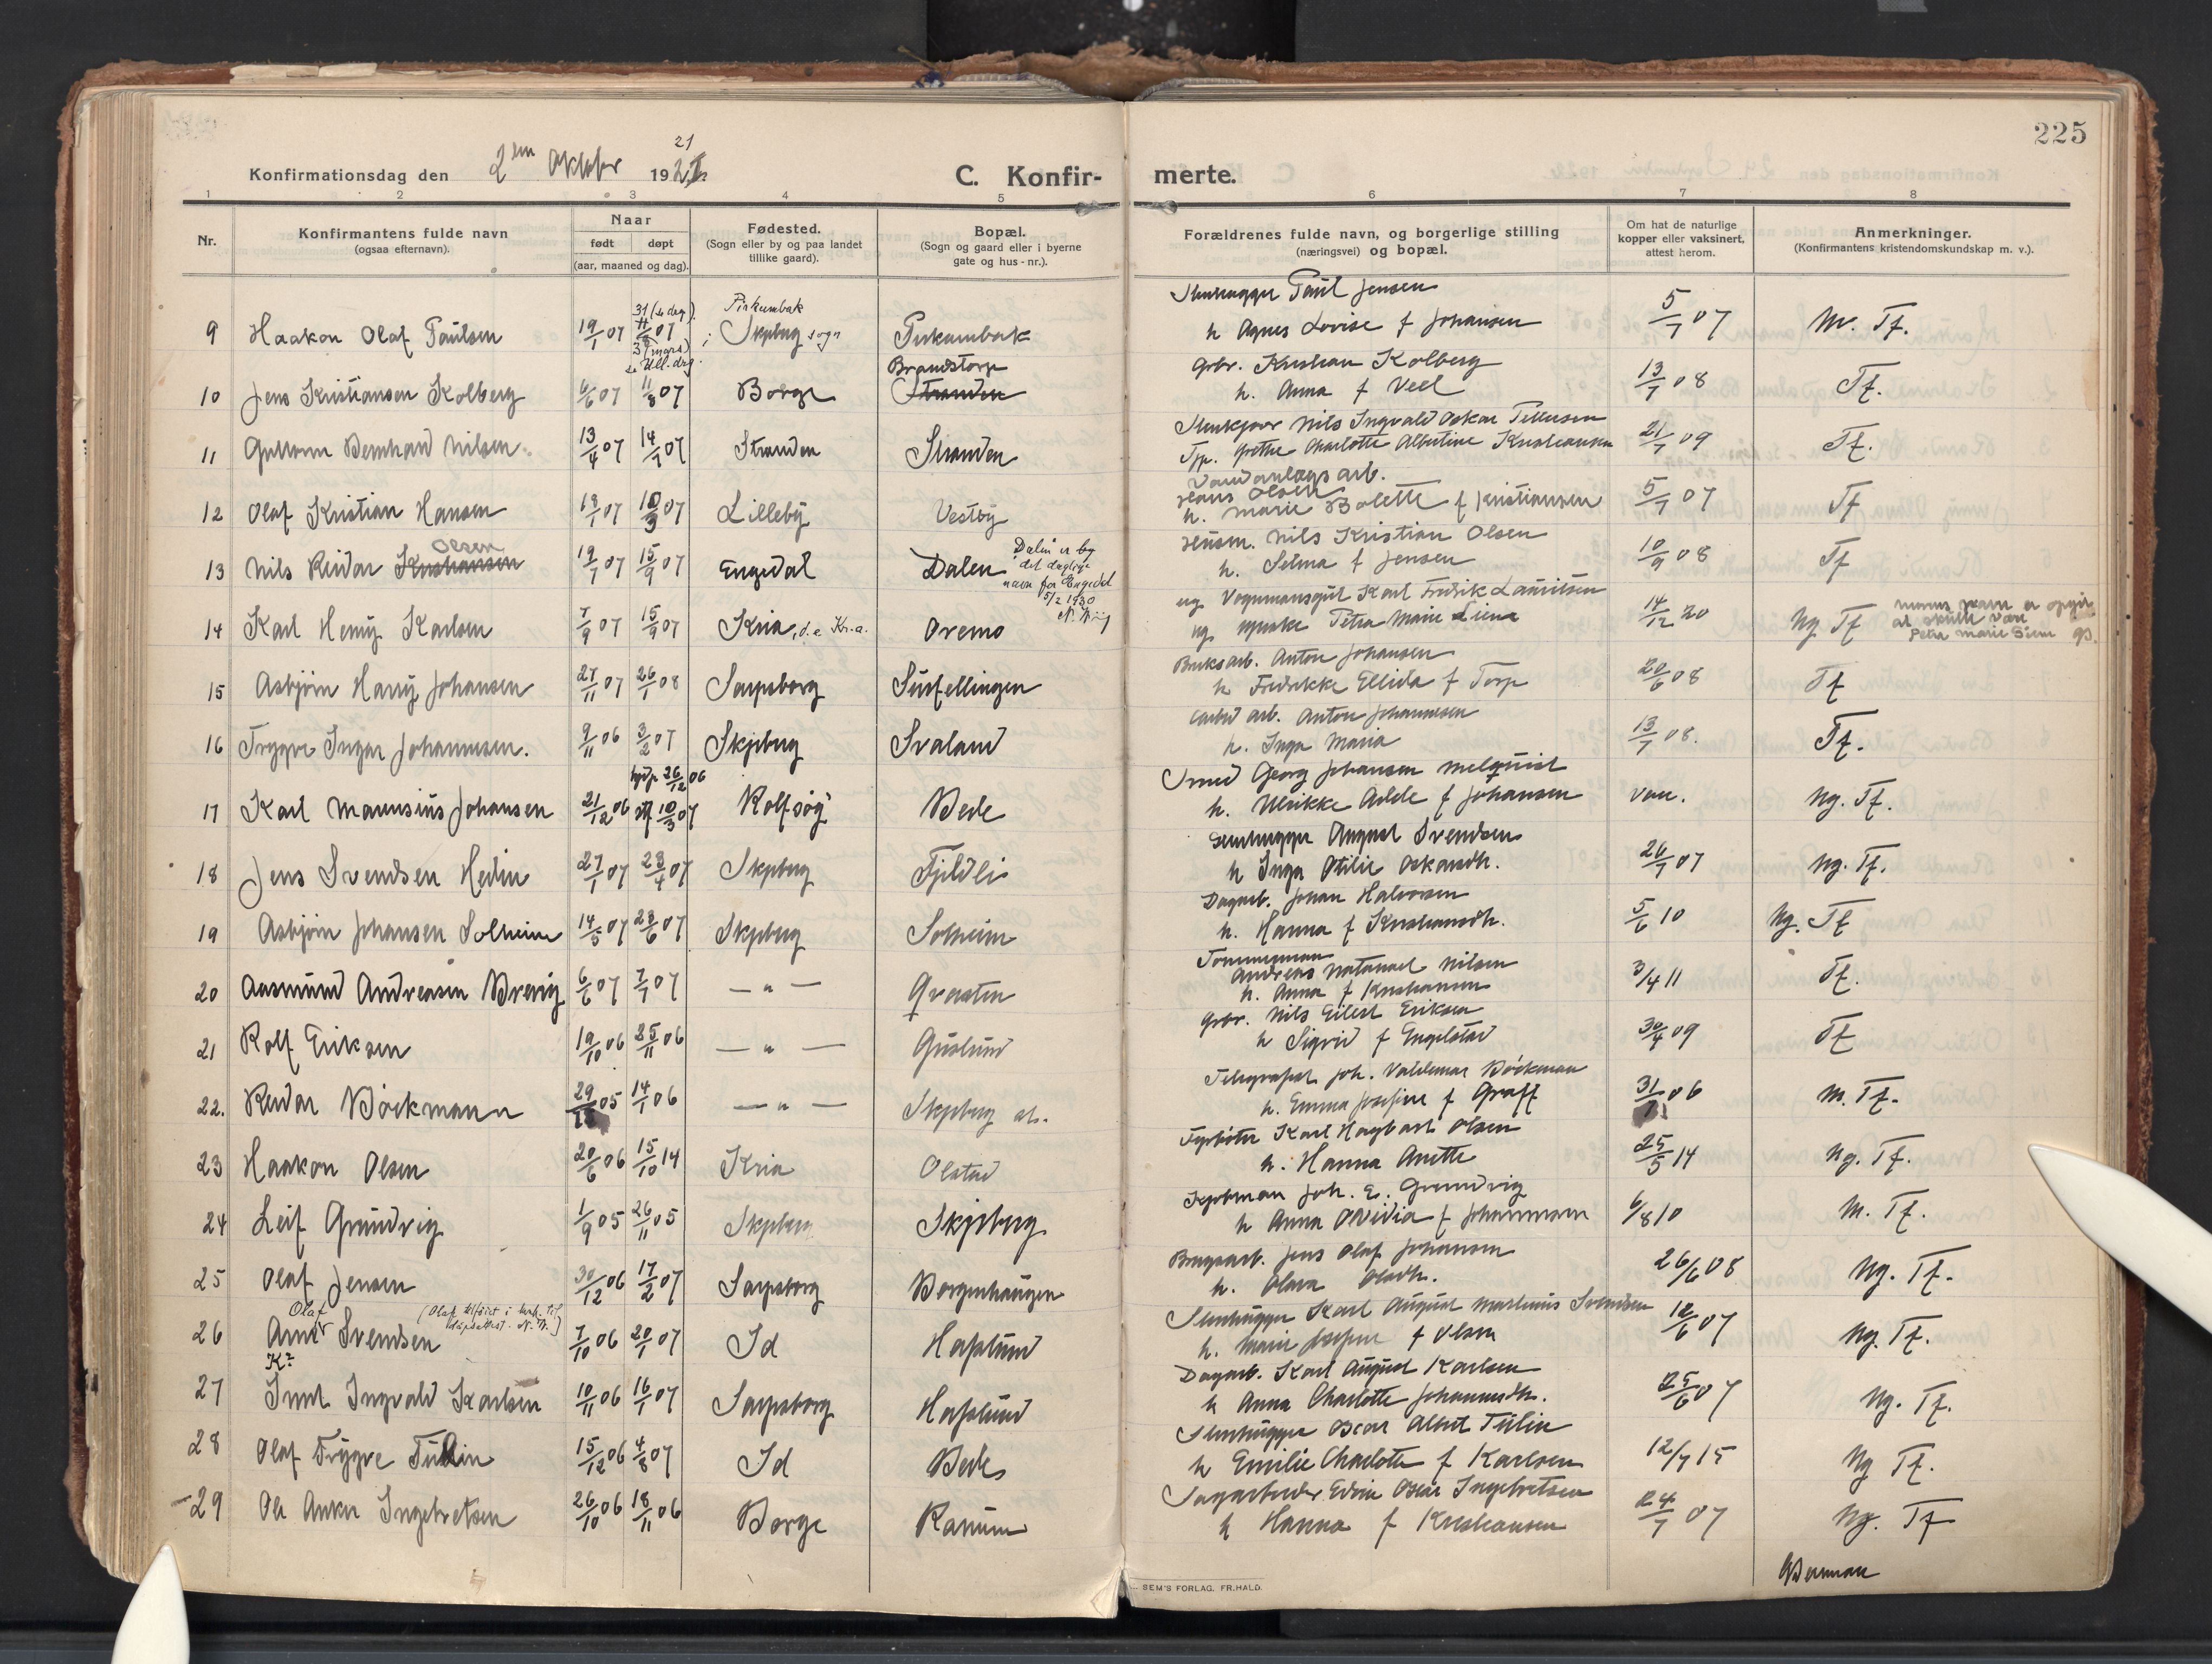 225
Konfirmationsdag den 2den Oktober 1921 21
C. Konfir-merte.
1 2 3 4 5 6 7 8
Nr.
Konfirmantens fulde navn
(ogsaa efternavn).
Naar
født døpt
(aar, maaned og dag).
Fødested.
(Sogn eller by og paa landet
tillike gaard).
Bopæl.
(Sogn og gaard eller i byerne
gate og hus-nr.).
Forældrenes fulde navn, og borgerlige stilling
(næringsvei) og bopæl.
Om hat de naturlige
kopper eller vaksinert,
attest herom.
Anmerkninger.
(Konfirmantens kristendomskundskap m. v.).
Stenhugger Paul Jensen
9 Haakon Olaf Paulsen 19/1 07 Skjeberg sogn h Agnes Lovise f Johansen 5/7 07 M. Tf.
Brandstorp Gbr. Kristian Kolberg
10 Jens Kristiansen Kolberg 6/6 07 11/8 07 Borge Stranden h. Anna f Veel 13/7 08 Tf.
Nils Ingvald Oskar Pettersen
11 Guttorm Bernhard Nilsen 13/4 07 14/7 07 Stranden Stranden Grethe Charlotte Albertine Kristiansen 21/7 09 Tf.
Vandanlægs arb.
Hans Olsen
12 Olaf Kristian Hansen 13/1 07 10/3 07 Lilleby Vestby h. Marie Bolette f Kristiansen 5/7 07 Tf
Olsen Nils Kristian Olsen
13 Nils Reidar Kristiansen 19/7 07 15/9 07 Engedal Dalen h. Selma f Jensen 10/9 08 Tf
Dalen er bg
det daglige
navn for Engedal
5/2 1930
ug Vognmansgut Karl Fredrik Lauritsen
14 Karl Henry Karlsen 7/9 07 15/9 07 Kria, d.e. Kr.a. Oremo ug. Petra Marie Liene 14/12 20 Ng Tf
Bruksarb. Anton Johansen
15 Asbjørn Harry Johansen 27/11 07 26/1 08 Sarpsborg Surfellingen h Fredrikke Ellida f Torp 20/6 08 Tf
Carbid arb. Anton Johannesen
16 Trygve Ingar Johannesen. 9/11 06 3/2 07 Skjeberg Svaland h. Inga Maria 13/7 08. Tf.
hjdp 26/12 06 Smed Georg Johansen Melquist
17 Karl Manusius Johansen 21/12 06 10/3 07 Rolfsøy Bede h. Ulrikke Adele f Johansen vac. Ng. Tf.
Stenhugger August Svendsen
18 Jens Svendsen Hedin 27/1 07 28/4 07 Skjeberg Fjeldli h Inga Otilie Oskarsdtr. 26/7 07 Ng. Tf.
Dagarb. Johan Halvorsen
19 Asbjørn Johansen Solheim 14/5 07 23/6 07 Skjeberg Solheim h. Hanna f Kristiansdtr. 5/6 10 Ng. Tf
Tømmerman
Andreas Natanael Nilsen
20 Aasmund Andreasen Brevig 6/6 07 7/7 07 — " — Graaten h. Anna f Kristiansen 3/4 11 Tf.
Gbr. Nils Eilert Eriksen
21 Rolf Eriksen 19/10 06 25/11 06 — " — Guslund h Sigrid f Engelstad 30/4 09 Tf
Telegrafist Joh. Valdemar Böckman
22. Reidar Böckmann 29/11 05 14/1 06 — " — Skjeberg st. h. Emma Josefine f Graff 31/7 06 M. Tf.
Fyrbøter Karl Hagbart Olsen
23 Haakon Olsen 20/6 06 15/10 14 Kria Olstad h. Hanna Anette 25/5 14 Ng. Tf.
Kjøbman Joh. E. Grundvig
24 Leif Grundvig 1/9 05 26/11 05 Skjeberg Skjeberg h Anna Olvidia f Johannesen 6/8 10 M. Tf.
Brugsarb. Jens Olaf Johansen
25 Olaf Jensen 30/12 06 17/2 07 Sarpsborg Borgenhaugen h. Olava Olsdtr. 26/6 08 Ng. Tf.
Olaf Stenhugger Karl August Martinius Svendsen
26 Arne Svendsen 7/10 06 20/1 07 Id Hafslund h. Marie Josefine f Olsen 12/6 07 Ng. Tf.
Dagarb. Karl August Karlsen
27 Ingvald Karlsen 10/11 06 16/1 07 Sarpsborg Hafslund h Anna Charlotte Johannesdtr. 25/6 07 Ng. Tf.
Stenhugger Oscar Albert Tulin
28 Olaf Trygve Tulin 15/12 06 4/8 07 Id Bede h Emilie Charlotte f Karlsen 12/7 15 Ng Tf.
Sagarbeider Edvin Oscar Ingebretsen
29 Ole Anker Ingebretsen 26/10 06 18/11 06 Borge Ranum h Hanna f Kristiansen 24/7 07 Ng. Tf
SEM'S FORLAG, FR.HALD.